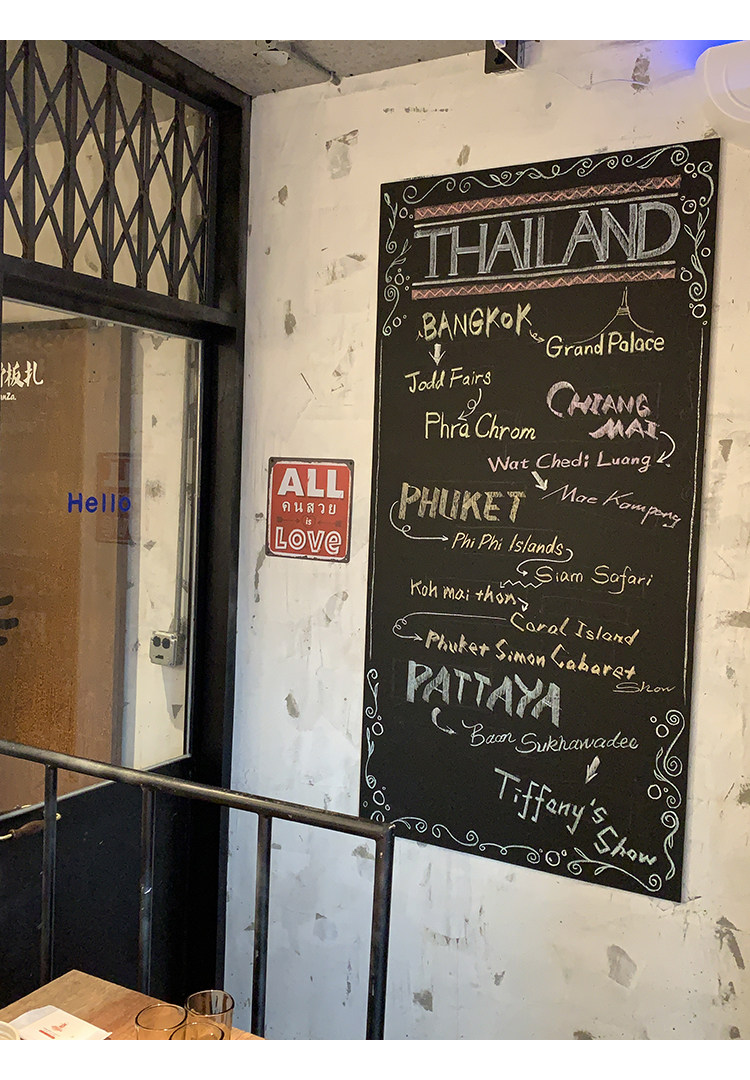 板扎
Hello
ALL
คนสวย
is
LOVe
THAILAND
BANGKOK
Grand Palace
Jodd Fairs
Phra Chrom
CHIANG
MAI
Wat Chedi Luang
Mae Kampong
PHUKET
Phi Phi Islands
Siam Safari
Koh mai thon
Coral Island
Phuket Simon Cabaret
Show
PATTAYA
Baan Sukhawadee
Tiffany's
Show